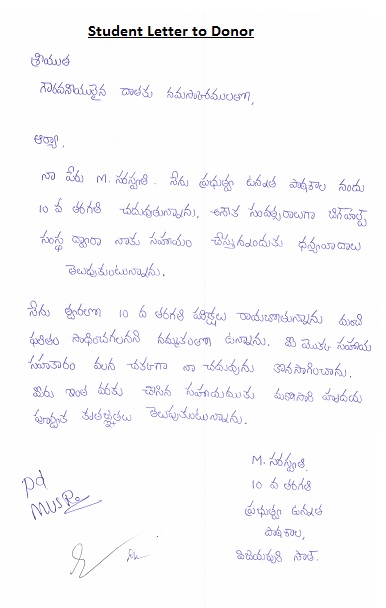 Student Letter to Donor
శ్రీయుత
గౌరవనీయులైన దాతకు నమస్కారములతో,
ఆర్యా,
నా పేరు M. సరస్వతి. నేను ప్రభుత్వ ఉన్నత పాఠశాల నందు
10 వ తరగతి చదువుతున్నాను. సంవత్సరాలుగా బిగ్‌హార్ట్
సంస్థ ద్వారా నాకు సహాయం చేస్తున్నందుకు ధన్యవాదాలు
తెలుపుతుంటున్నాను.
నేను త్వరలో 10 వ తరగతి పరీక్షలు రాయబోతున్నాను మంచి
ఫలితం సాధించగలనని నమ్మకంతో ఉన్నాను. మీ యొక్క సహాయ
సహకారం వలన చక్కగా నా చదువును కొనసాగించాను.
మీరు ఇంత వరకు చేసిన సహాయముకు మరొకసారి హృదయ
పూర్వక కృతజ్ఞతలు తెలుపుకుంటున్నాను.
M. సరస్వతి.
10 వ తరగతి
ప్రభుత్వ ఉన్నత
పాఠశాల,
విజయపురి సౌత్.